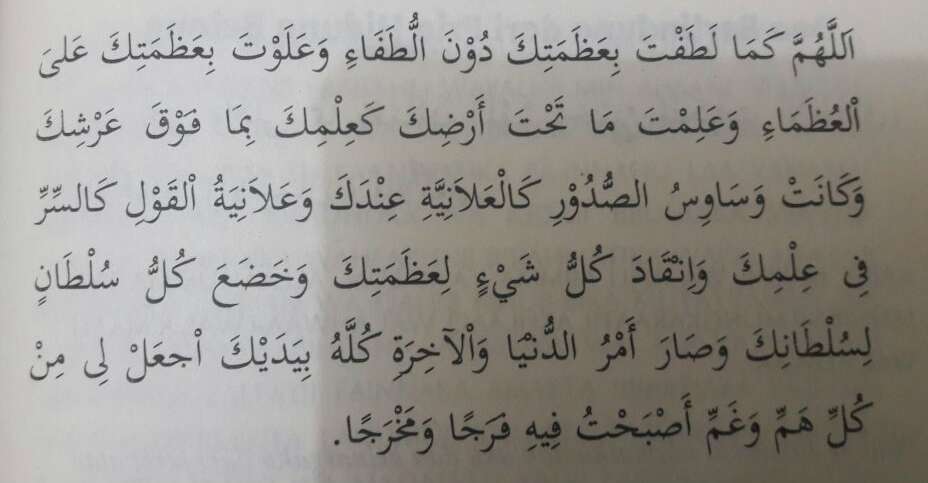 اَللَّهُمَّ كَمَا لَطَفْتَ بِعَظَمَتِكَ دُوْنَ الُّطَفَاءِ وَعَلَوْتَ بِعَظَمَتِكَ عَلىَ
اْلعُظَمَاءِ وَعَلِمْتَ مَا تَحْتَ أَرْضِكَ كَعِلْمِكَ بِمَا فَوْقَ عَرْشِكَ
وَكَانَتْ وَسَاوِسُ الصُّدُوْرِ كَالْعَلاَنِيَّةِ عِنْدَكَ وَعَلاَنِيَةُ اْلقَوْلِ كَالسِّرِّ
فِى عِلْمِكَ وَانْقَادَ كُلُّ شَيْءٍ لِعَظَمَتِكَ وَخَضَعَ كُلُّ سُلْطَانٍ
لِسُلْطَانِكَ وَصَارَ أَمْرُ الدُّنْيَا وَاْلآخِرَةِ كُلَّهُ بِيَدَيْكَ اْجعَلْ لِى مِنْ
كُلِّ هَمٍّ وَغَمٍّ أَصْبَحْتُ فِيهِ فَرَجًا وَمَخْرَجًا.